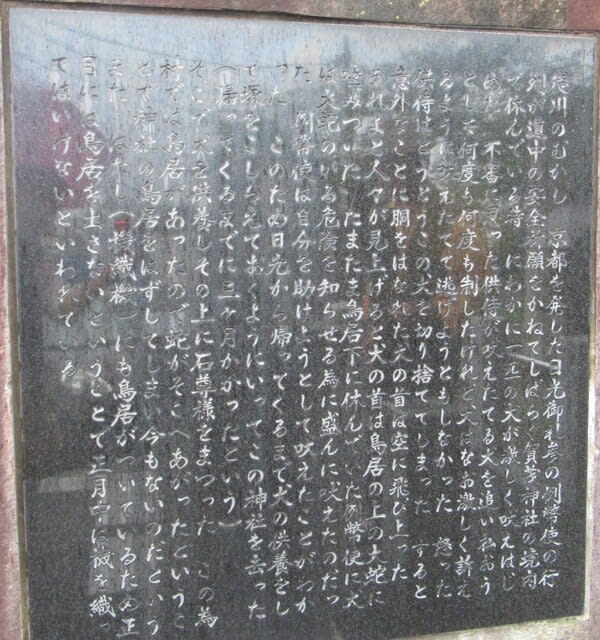 徳川のむかし 京都を発した日光御礼参の例幣使の行
列が道中の安全祈願をかねてしばらく賀茂神社の境内
で休んでいる時 にわかに一匹の犬が激しく吠えはじ
めた 不審に思った供侍が吠えたてる犬を追い払おう
として何度も何度も制したけれど犬はなお激しく訴え
るように吠えたてて逃げようともしなかった 怒った
供侍はとうとうこの犬を切り捨ててしまった すると
意外なことに胴をはなれた犬の首は空に飛び上った
あれよと人々が見上げると犬の首は鳥居の上の大蛇に
噛みついた たまたま鳥居下に休んでいた例幣使に犬
は大蛇のいる危険を知らせる為に盛んに吠えたのだっ
た 例幣使は自分を助けようとして吠えたことがわか
った このため日光から帰ってくるまで犬の供養をし
て塚をこしらえておくようにいってこの神社を去った
(帰ってくるまでに三ヶ月かかったという)
そこで犬を供養しその上に石尊様をまつった この為
村では鳥居があったので蛇がそこへあがったというこ
とで神社の鳥居をはずしてしまい今もないのだという
また はたし(機織機)にも鳥居がついているため正
月には鳥居を土さないということで正月中は機を織っ
てはいけないといわれている